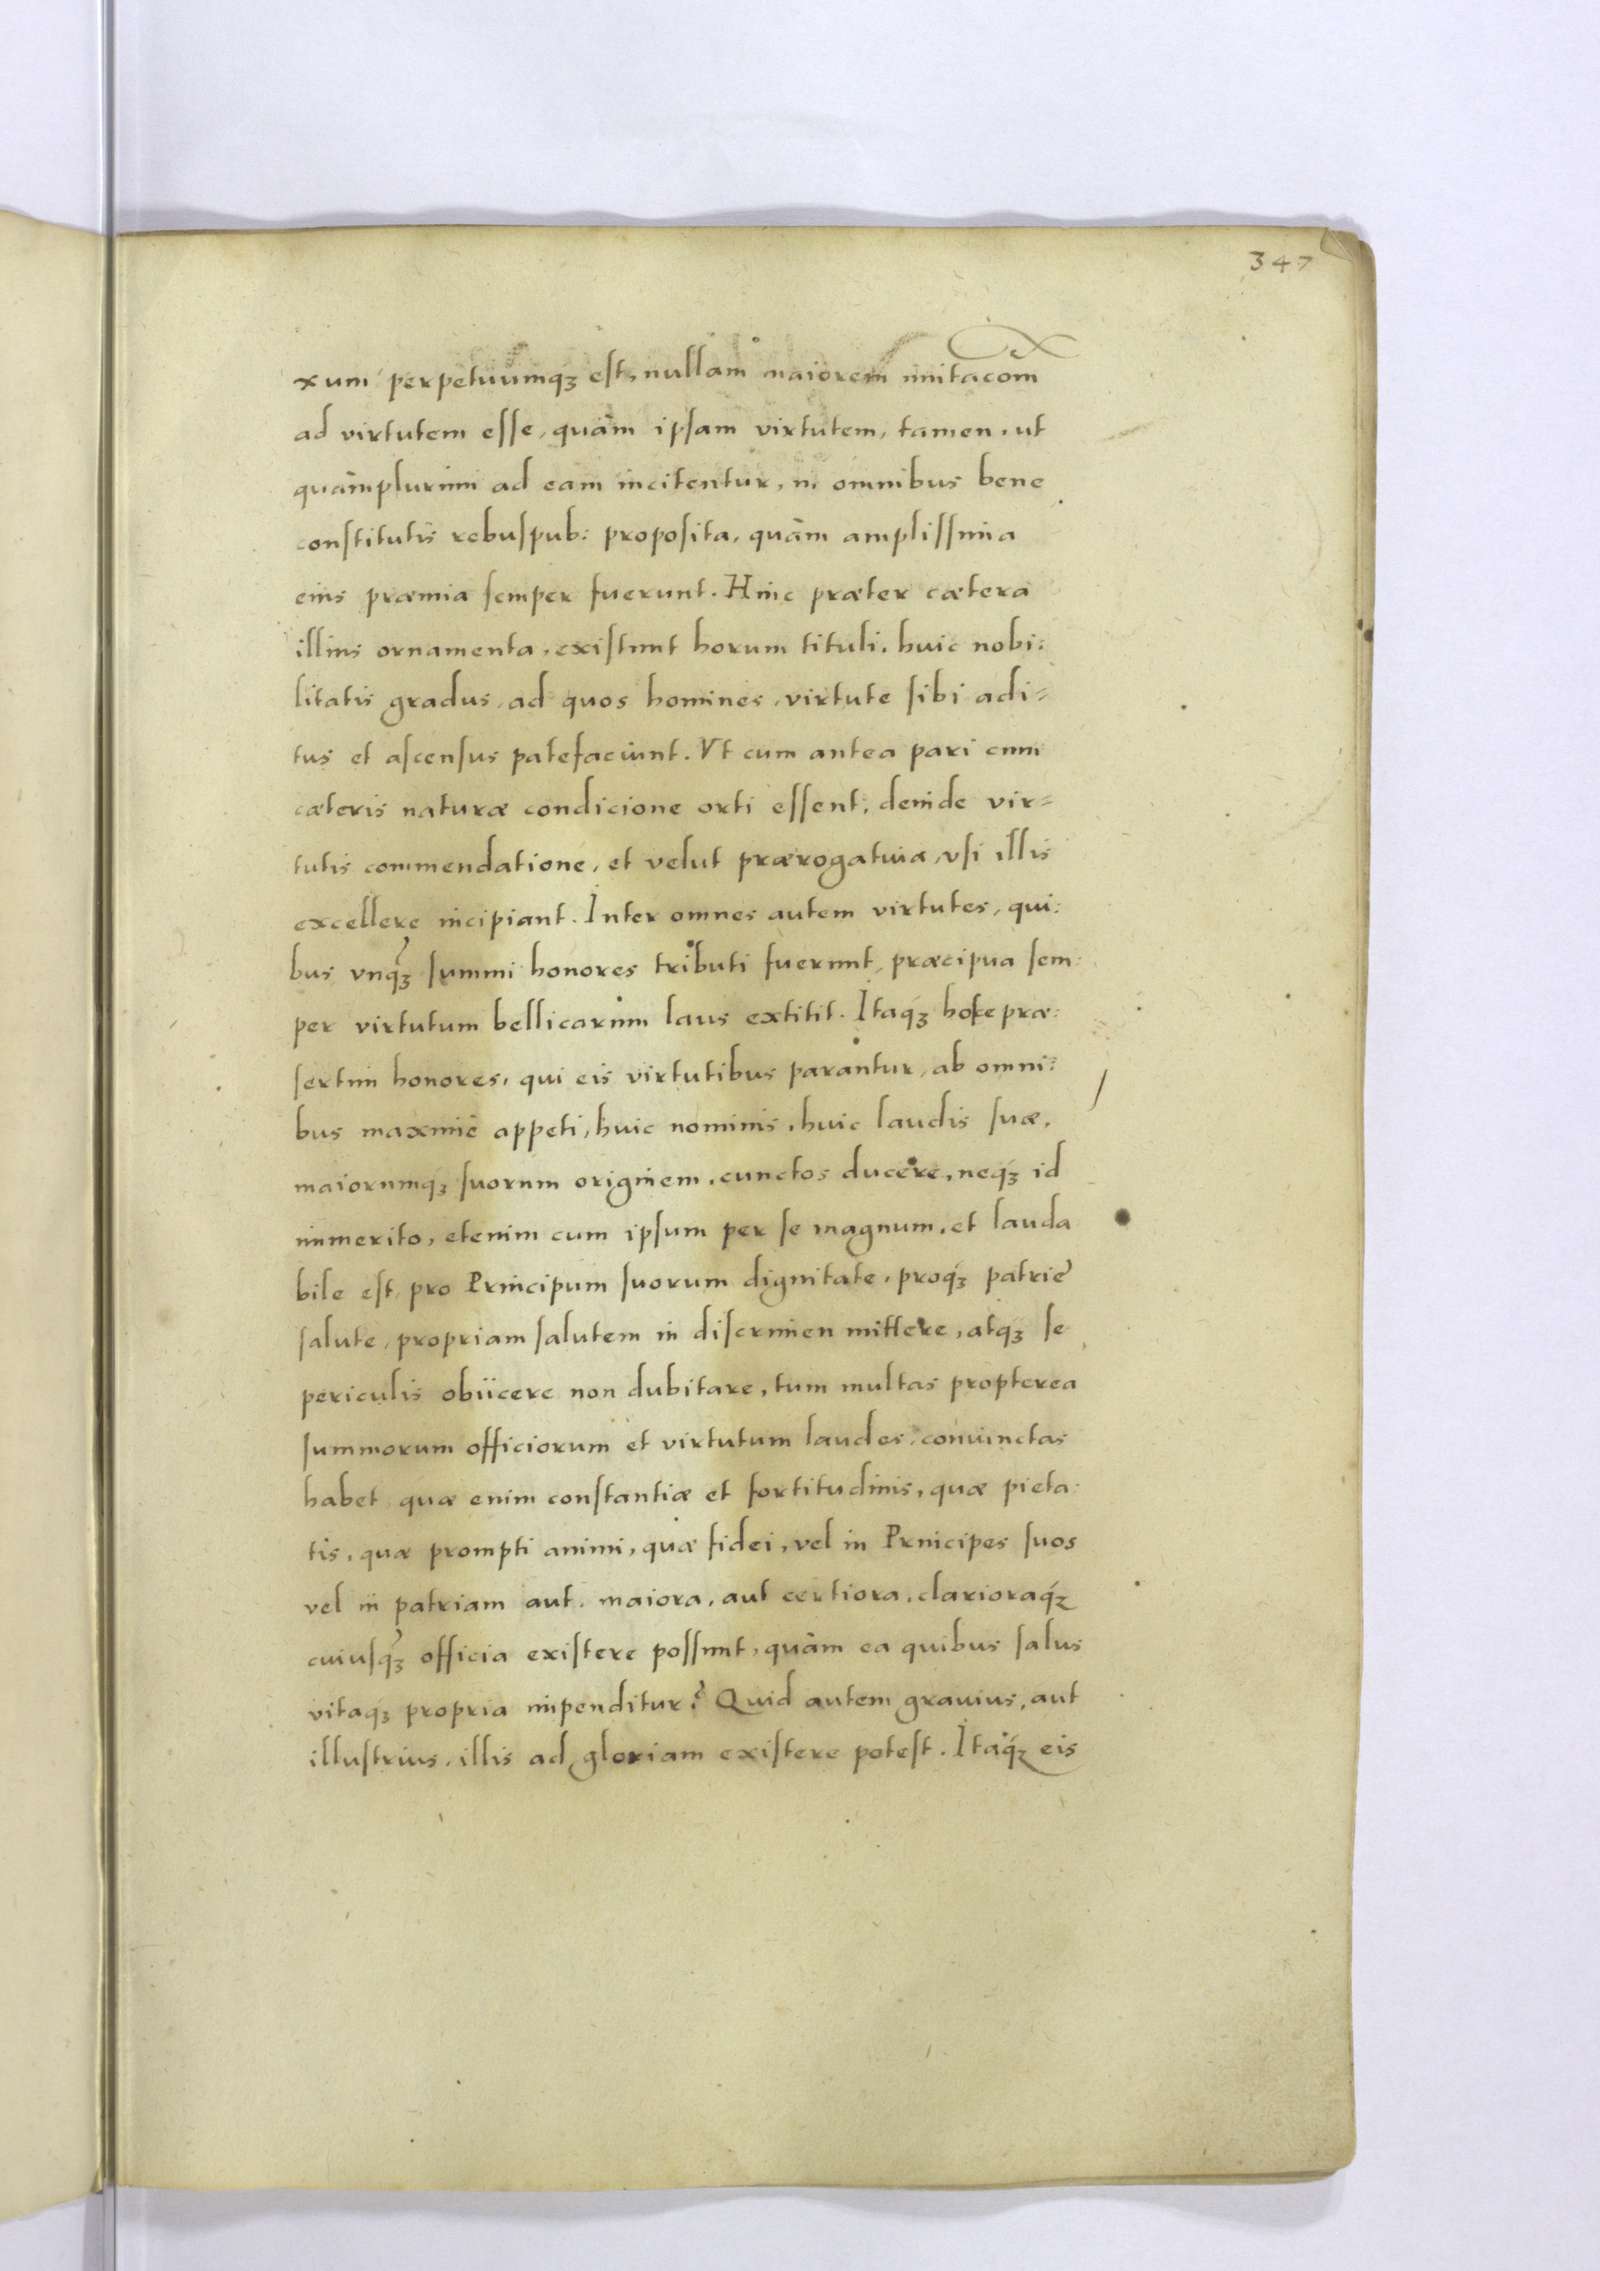 347
xum perpetuumqꝫ est, nullam maiorem inuitacõem
ad virtutem esse, quàm ipsam virtutem, tamen, ut
quàmplurimi ad eam incitentur, in omnibus bene
constitutis rebuspub: proposita, quàm amplissima
eius præmia semper fuerunt. Hinc præter cætera
illius ornamenta, existunt horum tituli, huic nobi:
litatis gradus, ad quos homines, virtute sibi adi=
tus et ascensus patefaciunt. Vt cum antea pari cum
cæteris naturæ condicione orti essent, deinde vir=
tutis commendatione, et velut prærogatiua, vsi illis
excellere incipiant. Inter omnes autem virtutes, qui:
bus vnqꝫ summi honores tributi fuerunt, præcipua sem:
per virtutum bellicarum laus extitit. Itaqꝫ hosce præ:
sertim honores, qui eis virtutibus parantur, ab omni:
bus maximè appeti, huic nominis, huic laudis suæ,
maiorumqꝫ suorum originem, cunctos ducere, neqꝫ id
immerito, etenim cum ipsum per se magnum, et lauda
bile est, pro Principum suorum dignitate, proqꝫ patrie
salute, propriam salutem in discrimen mittere, atqꝫ se
periculis obiicere non dubitare, tum multas propterea
summorum officiorum et virtutum laudes, conuinctas
habet, quæ enim constantiæ et fortitudinis, quæ pieta:
tis, quæ prompti animi, quæ fidei, vel in Principes suos
vel in patriam aut, maiora, aut certiora, clarioraqꝫ
cuiusqꝫ officia existere possunt, quàm ea quibus salus
vitaqꝫ propria impenditur? Quid autem grauius, aut
illustrius, illis ad gloriam existere potest. Itaqꝫ eis